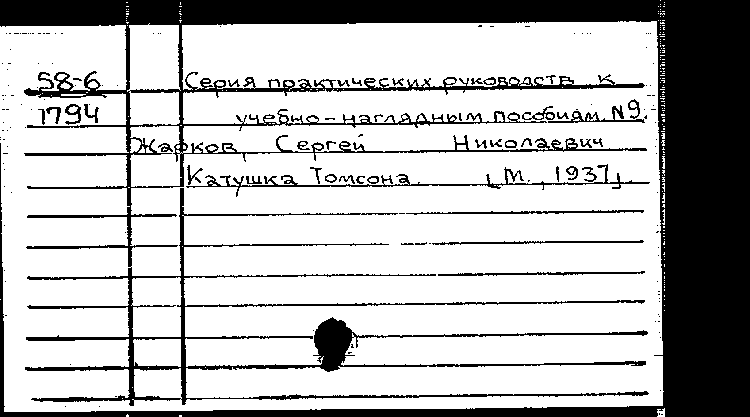 58-6 Серия практических руководств к
1794 учебно-наглядным пособиям. N9.
Жарков, Сергей Николаевич
Катушка Томсона. [М., 1937].